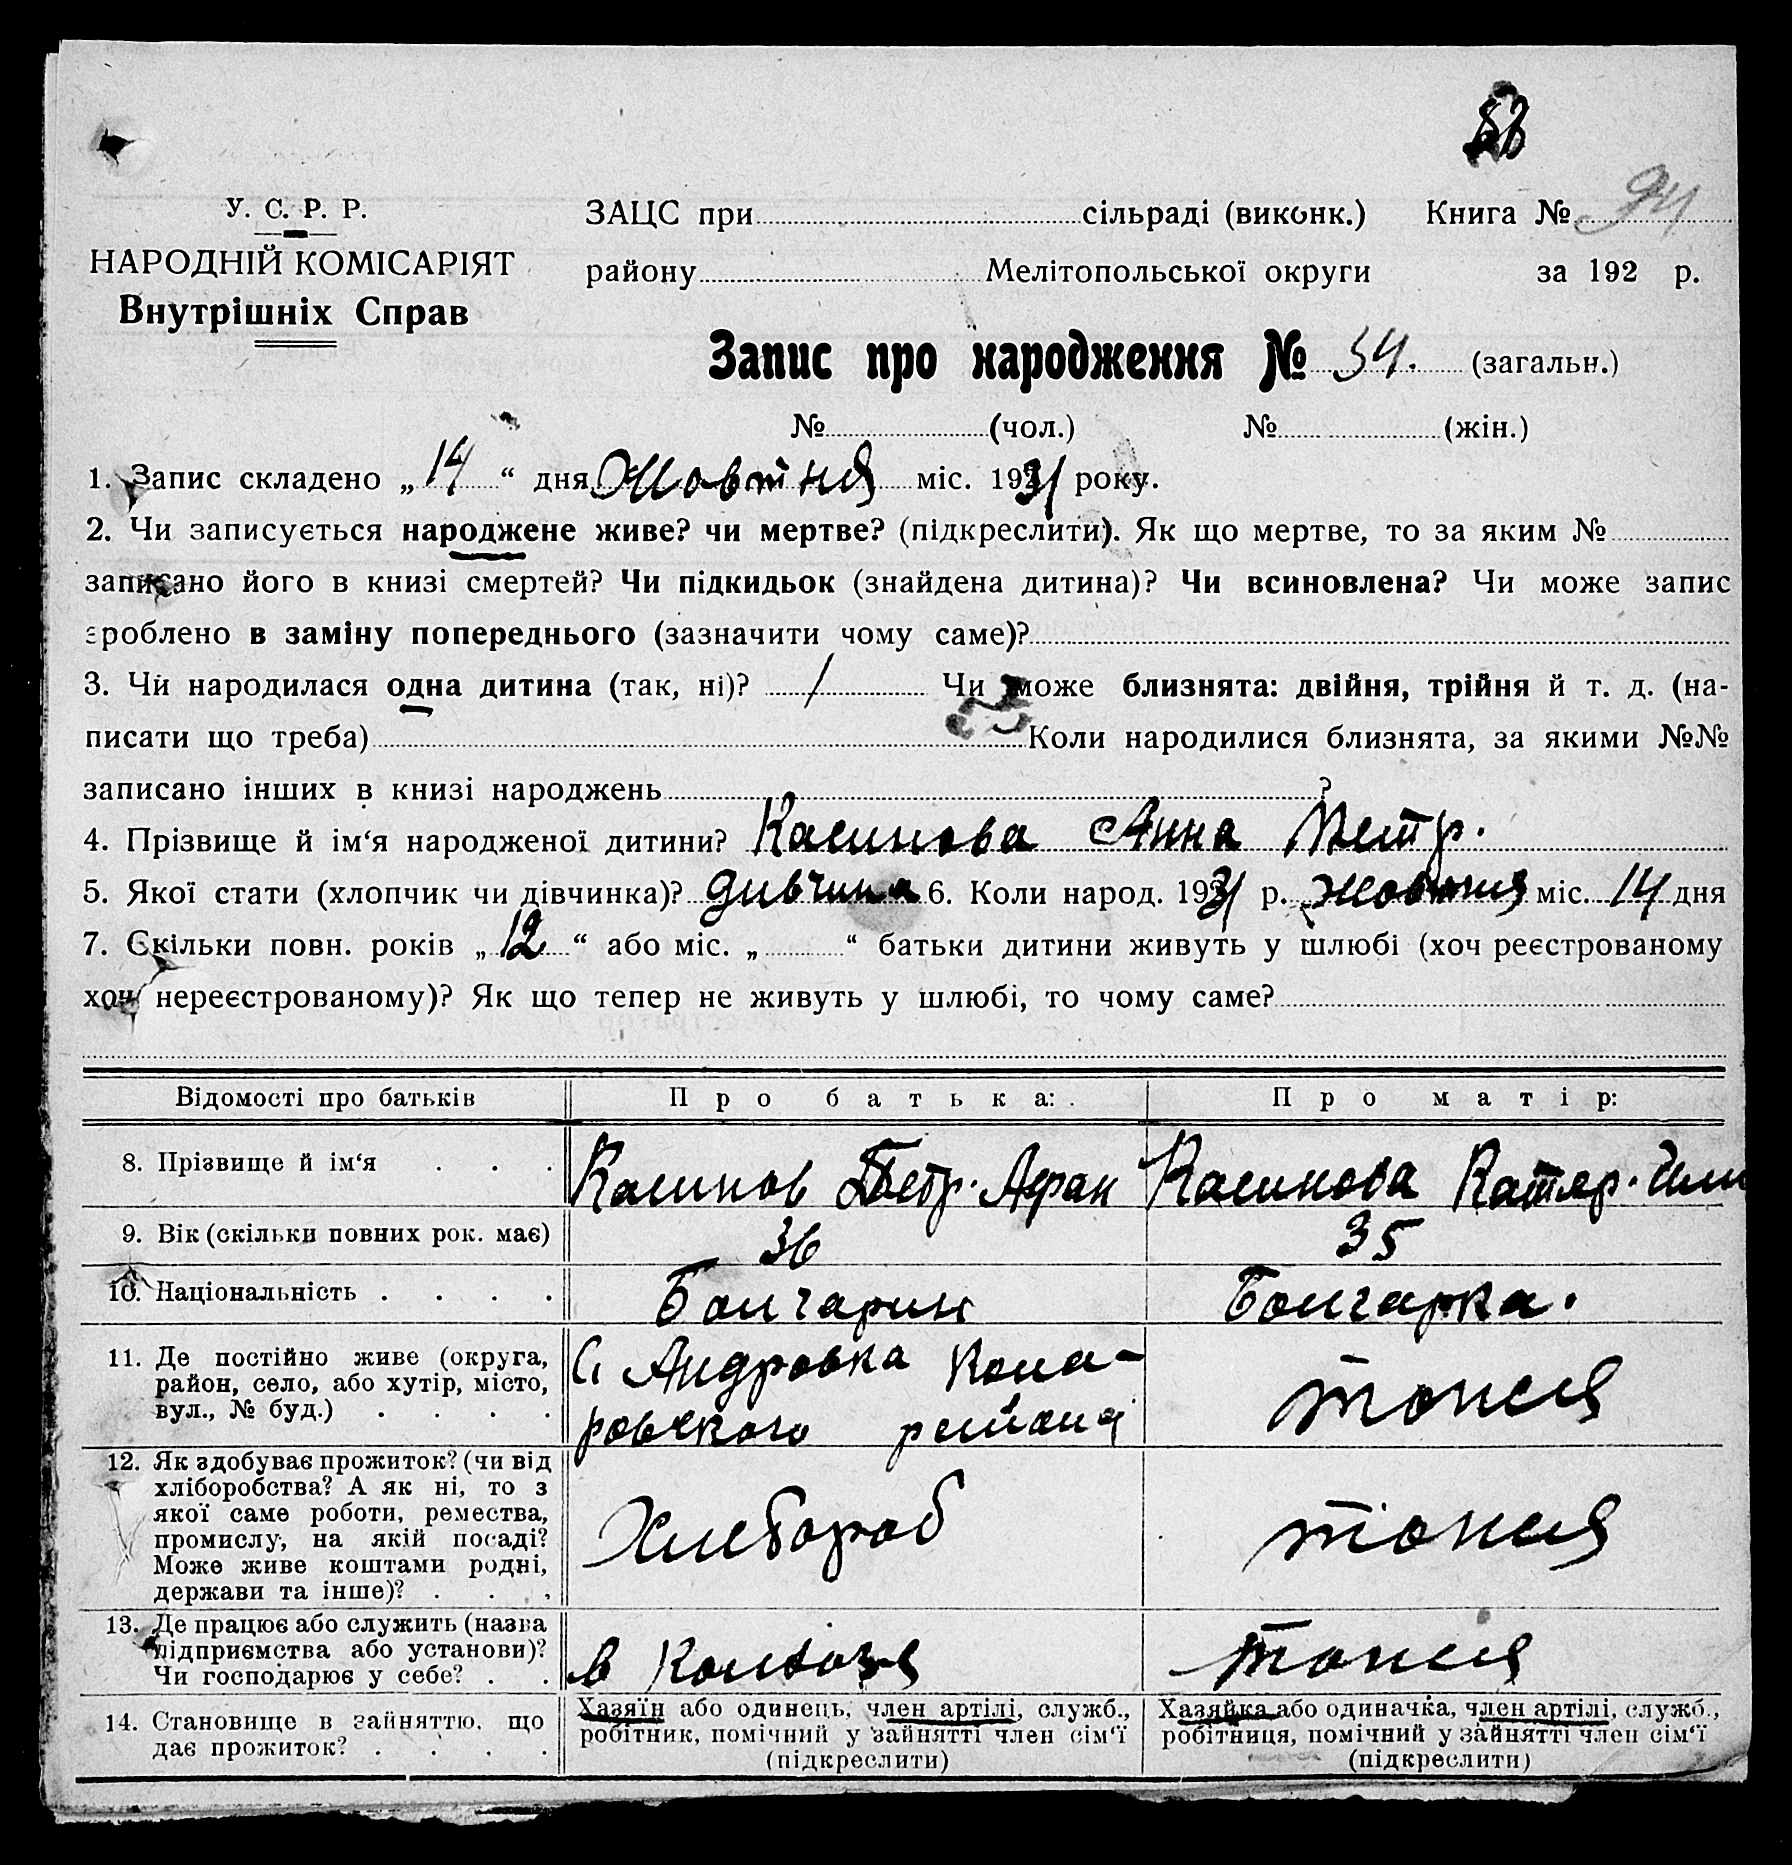 94
У. С. Р. Р.
НАРОДНІЙ КОМІСАРІЯТ
Внутрішніх Справ
ЗАЦС при сільраді (виконк.) Книга №
району Мелітопольської округи за 192 р.
Запис про народження № 34. (загальн.)
№ (чол.) № (жін.)
1. Запис складено „14“ дня Жовтня міс. 1931 року.
2. Чи записується народжене живе? чи мертве? (підкреслити). Як що мертве, то за яким №
записано його в книзі смертей? Чи підкидьок (знайдена дитина)? Чи всиновлена? Чи може запис
зроблено в заміну попереднього (зазначити чому саме)?
3. Чи народилася одна дитина (так, ні)? / Чи може близнята: двійня, трійня й т. д. (на-
писати що треба) Коли народилися близнята, за якими №№
записано інших в книзі народжень ?
4. Прізвище й ім‘я народженої дитини? Касинова Анна Петр.
5. Якої стати (хлопчик чи дівчинка)? дивчина 6. Коли народ. 1931 р. жовтня міс. 14 дня
7. Скільки повн. років „12“ або міс. „ “ батьки дитини живуть у шлюбі (хоч реєстрованому
хоч нереєстрованому)? Як що тепер не живуть у шлюбі, то чому саме?
Відомості про батьків Про батька: Про матір:
8. Прізвище й ім‘я . . . Касинов Петр. Афан Касинова Катер.
9. Вік (скільки повних рок. має) 36 35
10. Національність . . . . Болгарин Болгарка.
11. Де постійно живе (округа,
район, село, або хутір, місто,
вул., № буд.) . . . .
С. Андровка Кола-
ровского района
тоже
12. Як здобуває прожиток? (чи від
хліборобства? А як ні, то з
якої саме роботи, ремества,
промислу, на якій посаді?
Може живе коштами родні,
держави та інше)? . . .
Хлебороб
13. Де працює або служить (назва
підприємства або установи)?
Чи господарює у себе? . .
в
14. Становище в зайняттю, що
дає прожиток? . . . .
Хазяїн або одинець, член артілі, служб.,
робітник, помічний у зайнятті член сім‘ї
(підкреслити)
Хазяйка або одиначка, член артілі, служб.,
робітниця, помічний у зайнятті член сім‘ї
(підкреслити)